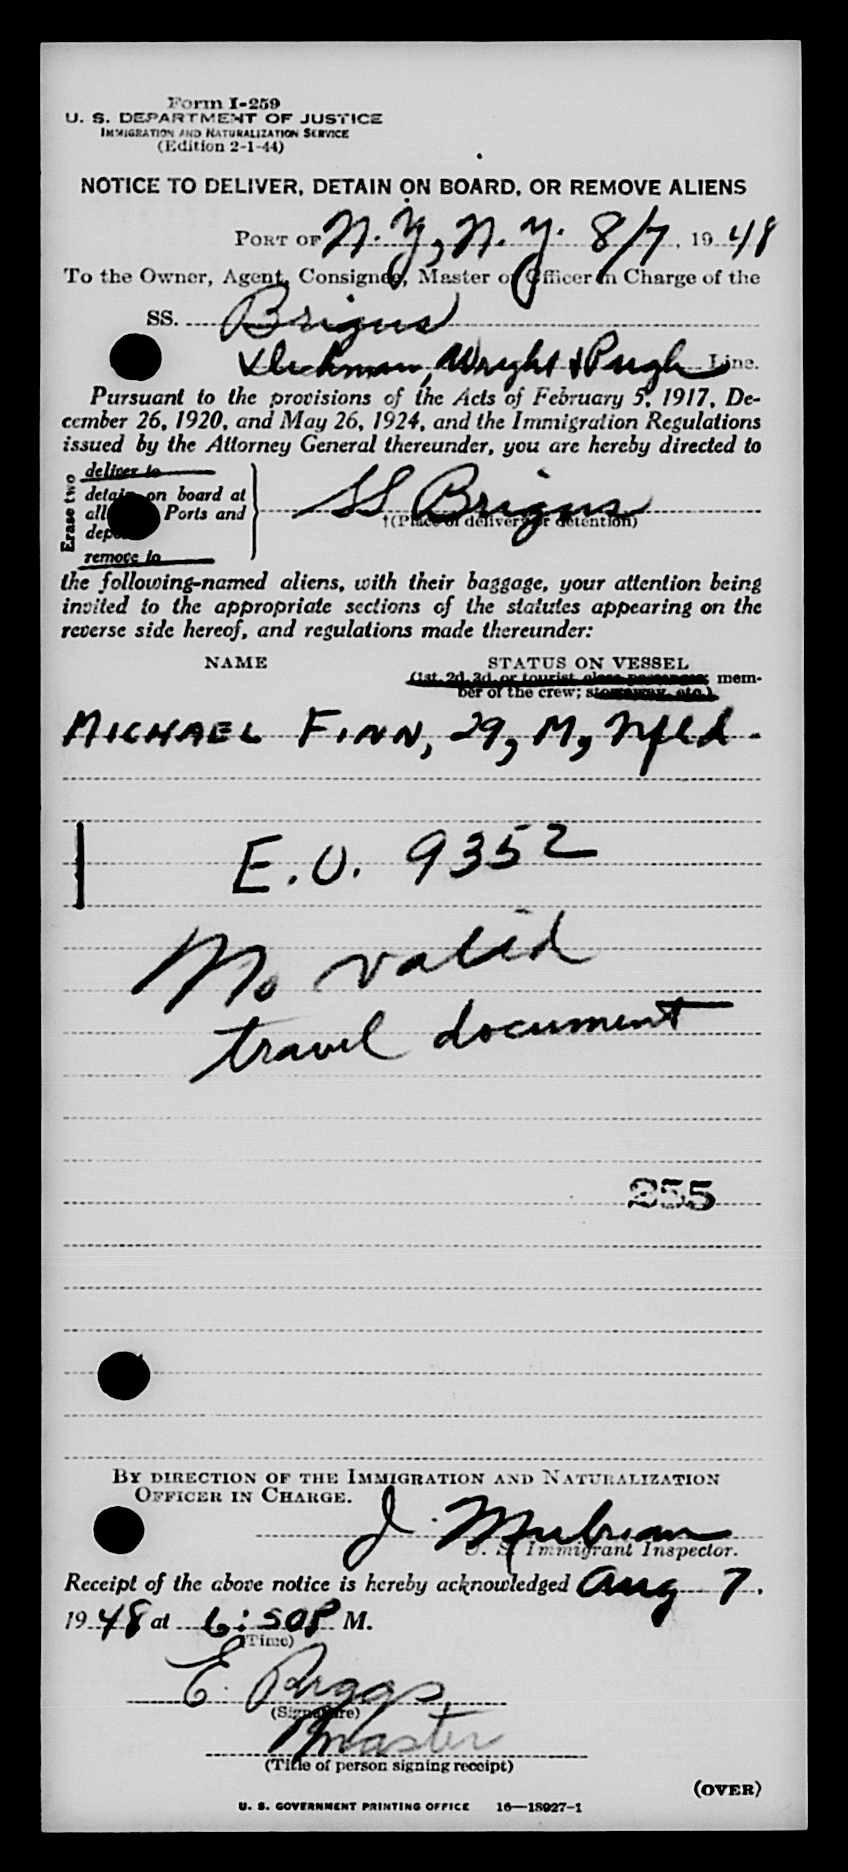 Form I-259
U. S. DEPARTMENT OF JUSTICE
IMMIGRATION AND NATURALIZATION SERVICE
(Edition 2-1-44)
NOTICE TO DELIVER, DETAIN ON BOARD, OR REMOVE ALIENS
PORT OF N.Y., N.Y. 8/7, 1948
To the Owner, Agent, Consignee, Master or Officer in Charge of the
SS. Brigus
Wright & Pugh Line.
Pursuant to the provisions of the Acts of February 5, 1917, De-
cember 26, 1920, and May 26, 1924, and the Immigration Regulations
issued by the Attorney General thereunder, you are hereby directed to
Erase two
deliver to
detain on board at
all Ports and
remove to
SS Brigus
†(Place of delivery or detention)
the following-named aliens, with their baggage, your attention being
invited to the appropriate sections of the statutes appearing on the
reverse side hereof, and regulations made thereunder:
NAME STATUS ON VESSEL
(1st, 2d, 3d, or tourist class passenger; mem-
ber of the crew; stowaway, etc.)
MICHAEL FINN, 29, M, Nfld.
E.O. 9352
No valid
travel document
255
BY DIRECTION OF THE IMMIGRATION AND NATURALIZATION
OFFICER IN CHARGE.
J.
U. S. Immigrant Inspector.
Receipt of the above notice is hereby acknowledged Aug 7,
1948 at 6:50P M.
(Time)
E.
(Signature)
Master
(Title of person signing receipt)
(OVER)
U. S. GOVERNMENT PRINTING OFFICE 16—18927-1